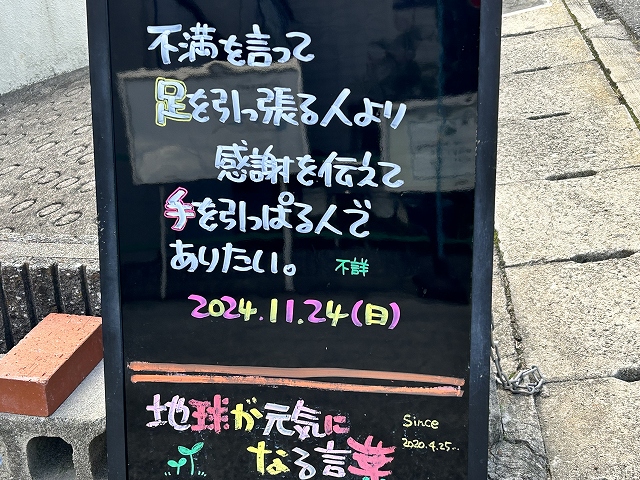 不満を言って
足を引っ張る人より
感謝を伝えて
手を引っぱる人で
ありたい。 不詳
2024.11.24(日)
地球が元気に
なる言葉
Since
2020.4.25..